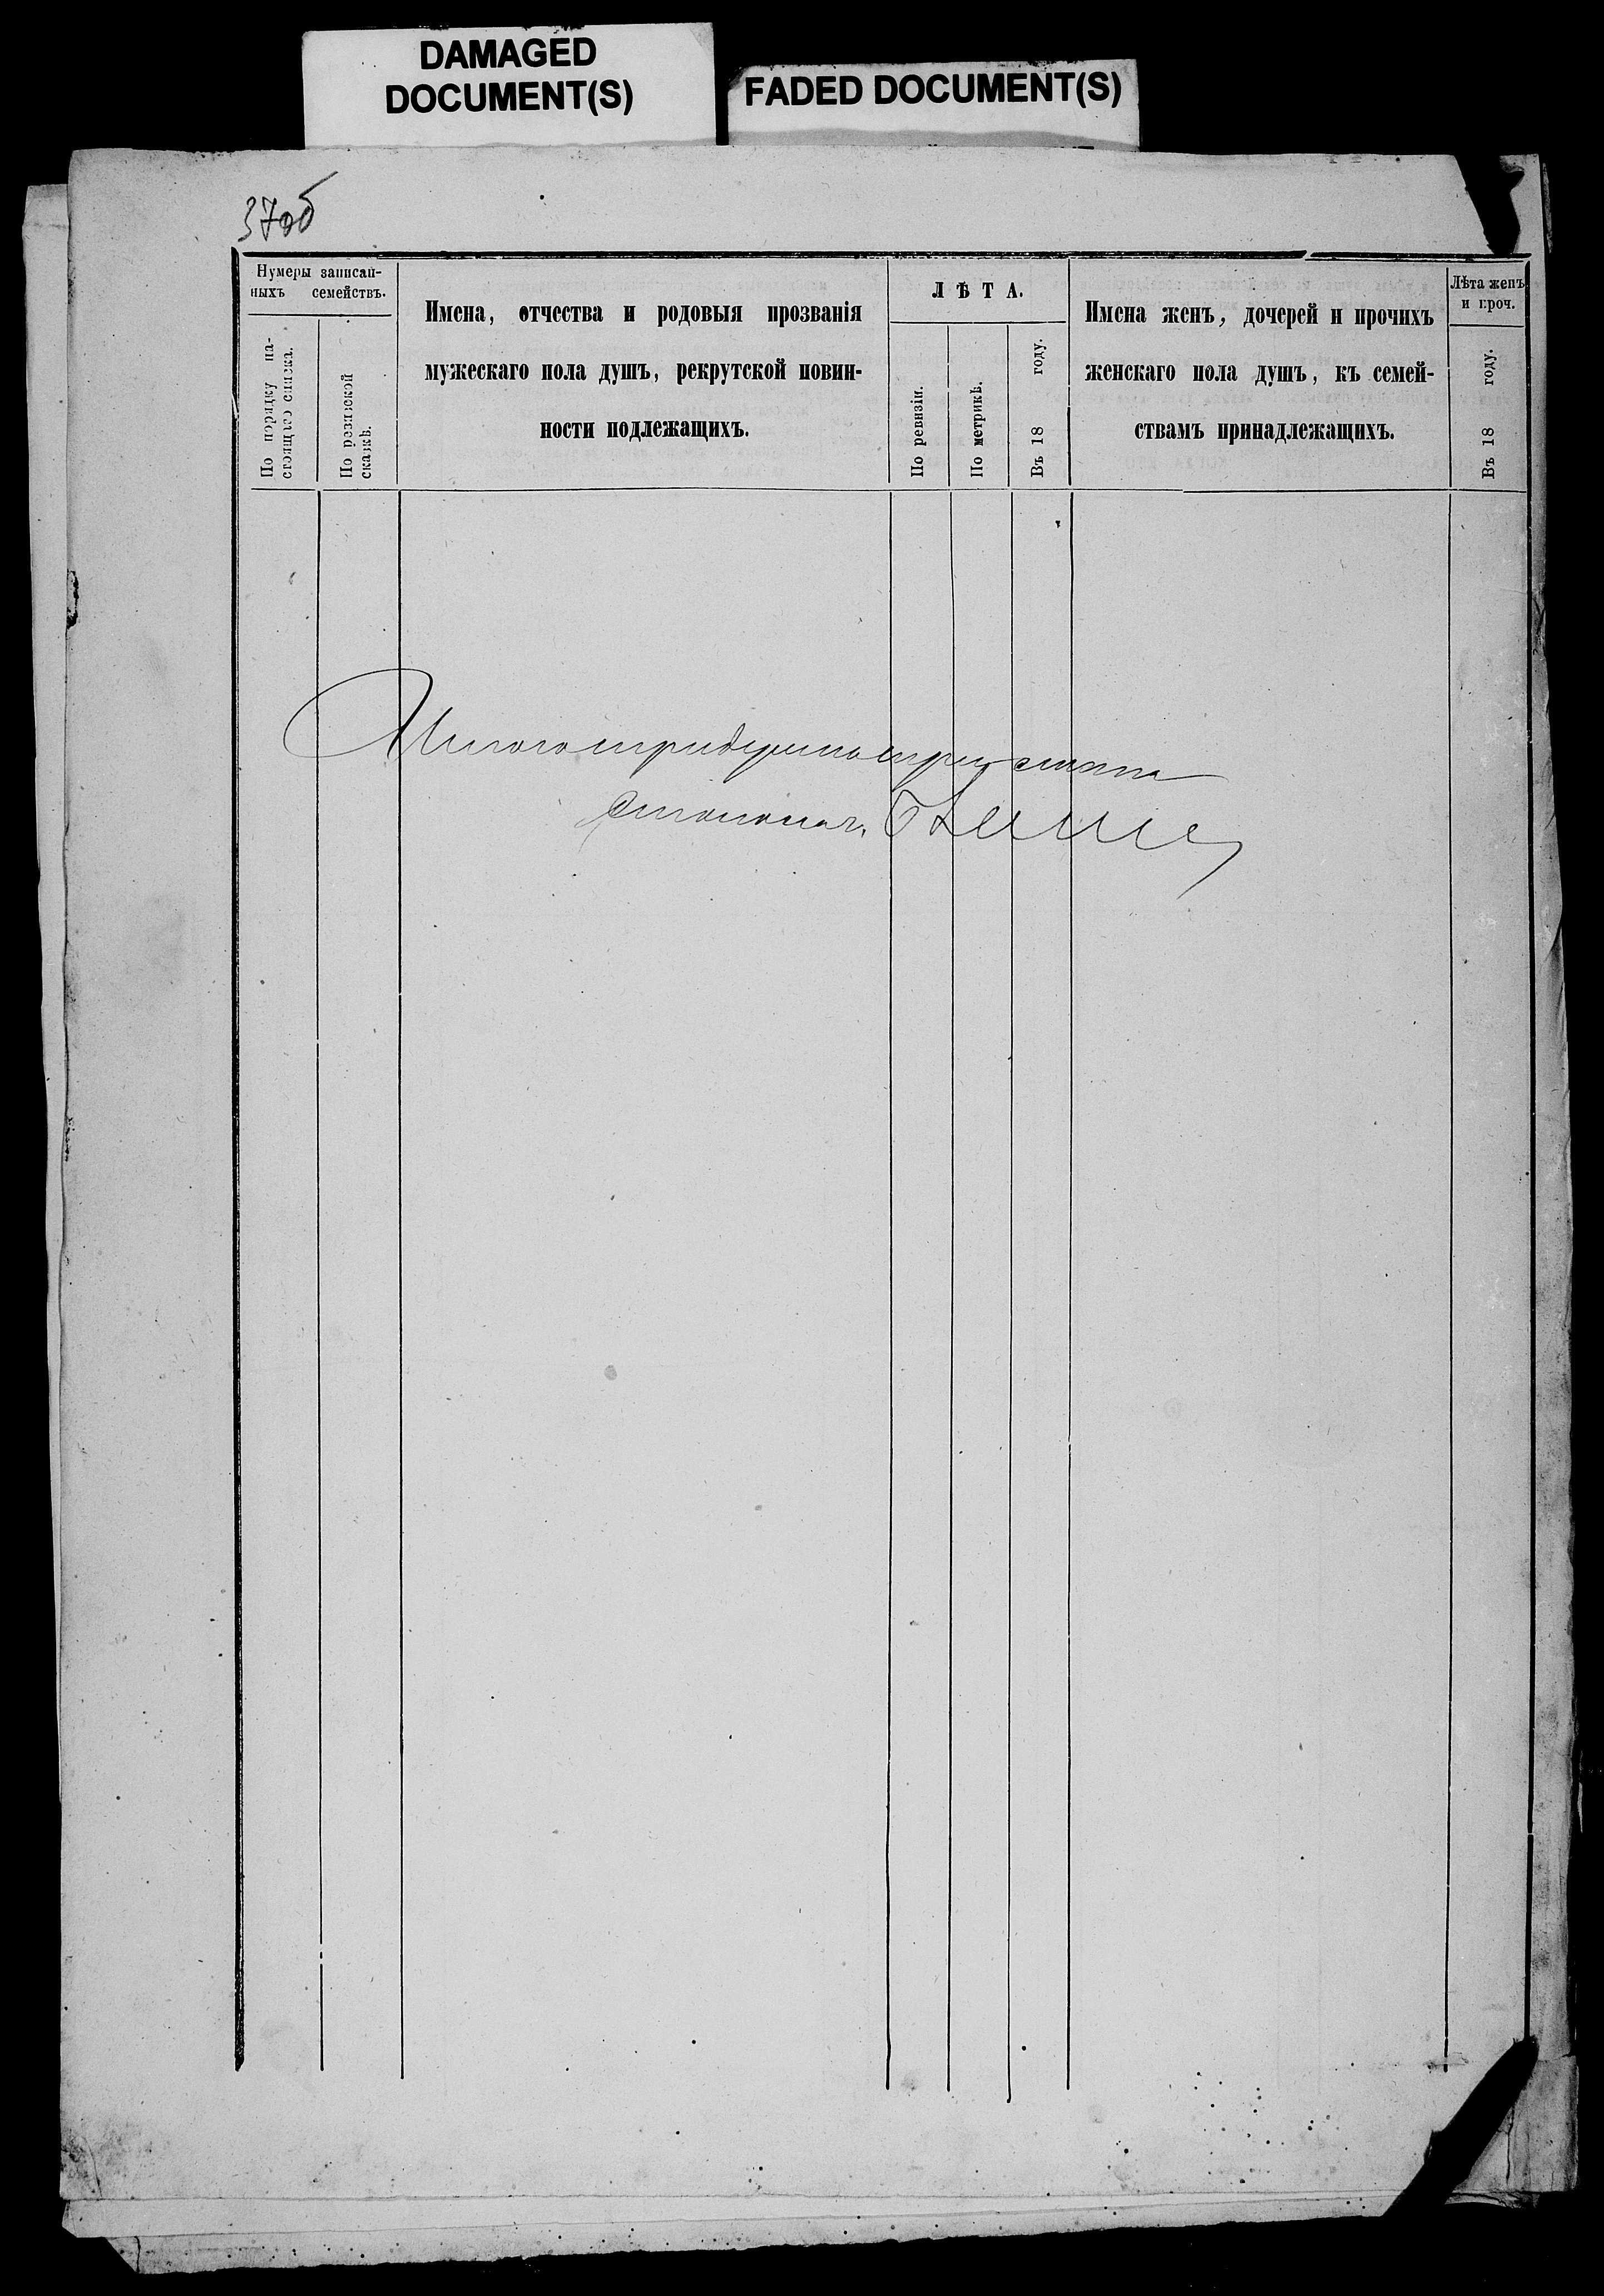 DAMAGED
DOCUMENT(S)
FADED DOCUMENT(S)
37об
Нумеры записан-
ныхъ семействъ.
По порядку на-
стоящаго списка.
По ревизской
сказкѣ.
Имена, отчества и родовыя прозванія
мужескаго пола душъ, рекрутской повин-
ности подлежащихъ.
ЛѢТА.
По ревизіи.
По метрикѣ.
Въ 18 году.
Имена женъ, дочерей и прочихъ
женскаго пола душъ, къ семей-
ствамъ принадлежащихъ.
Лѣта женъ
и проч.
Въ 18 году.